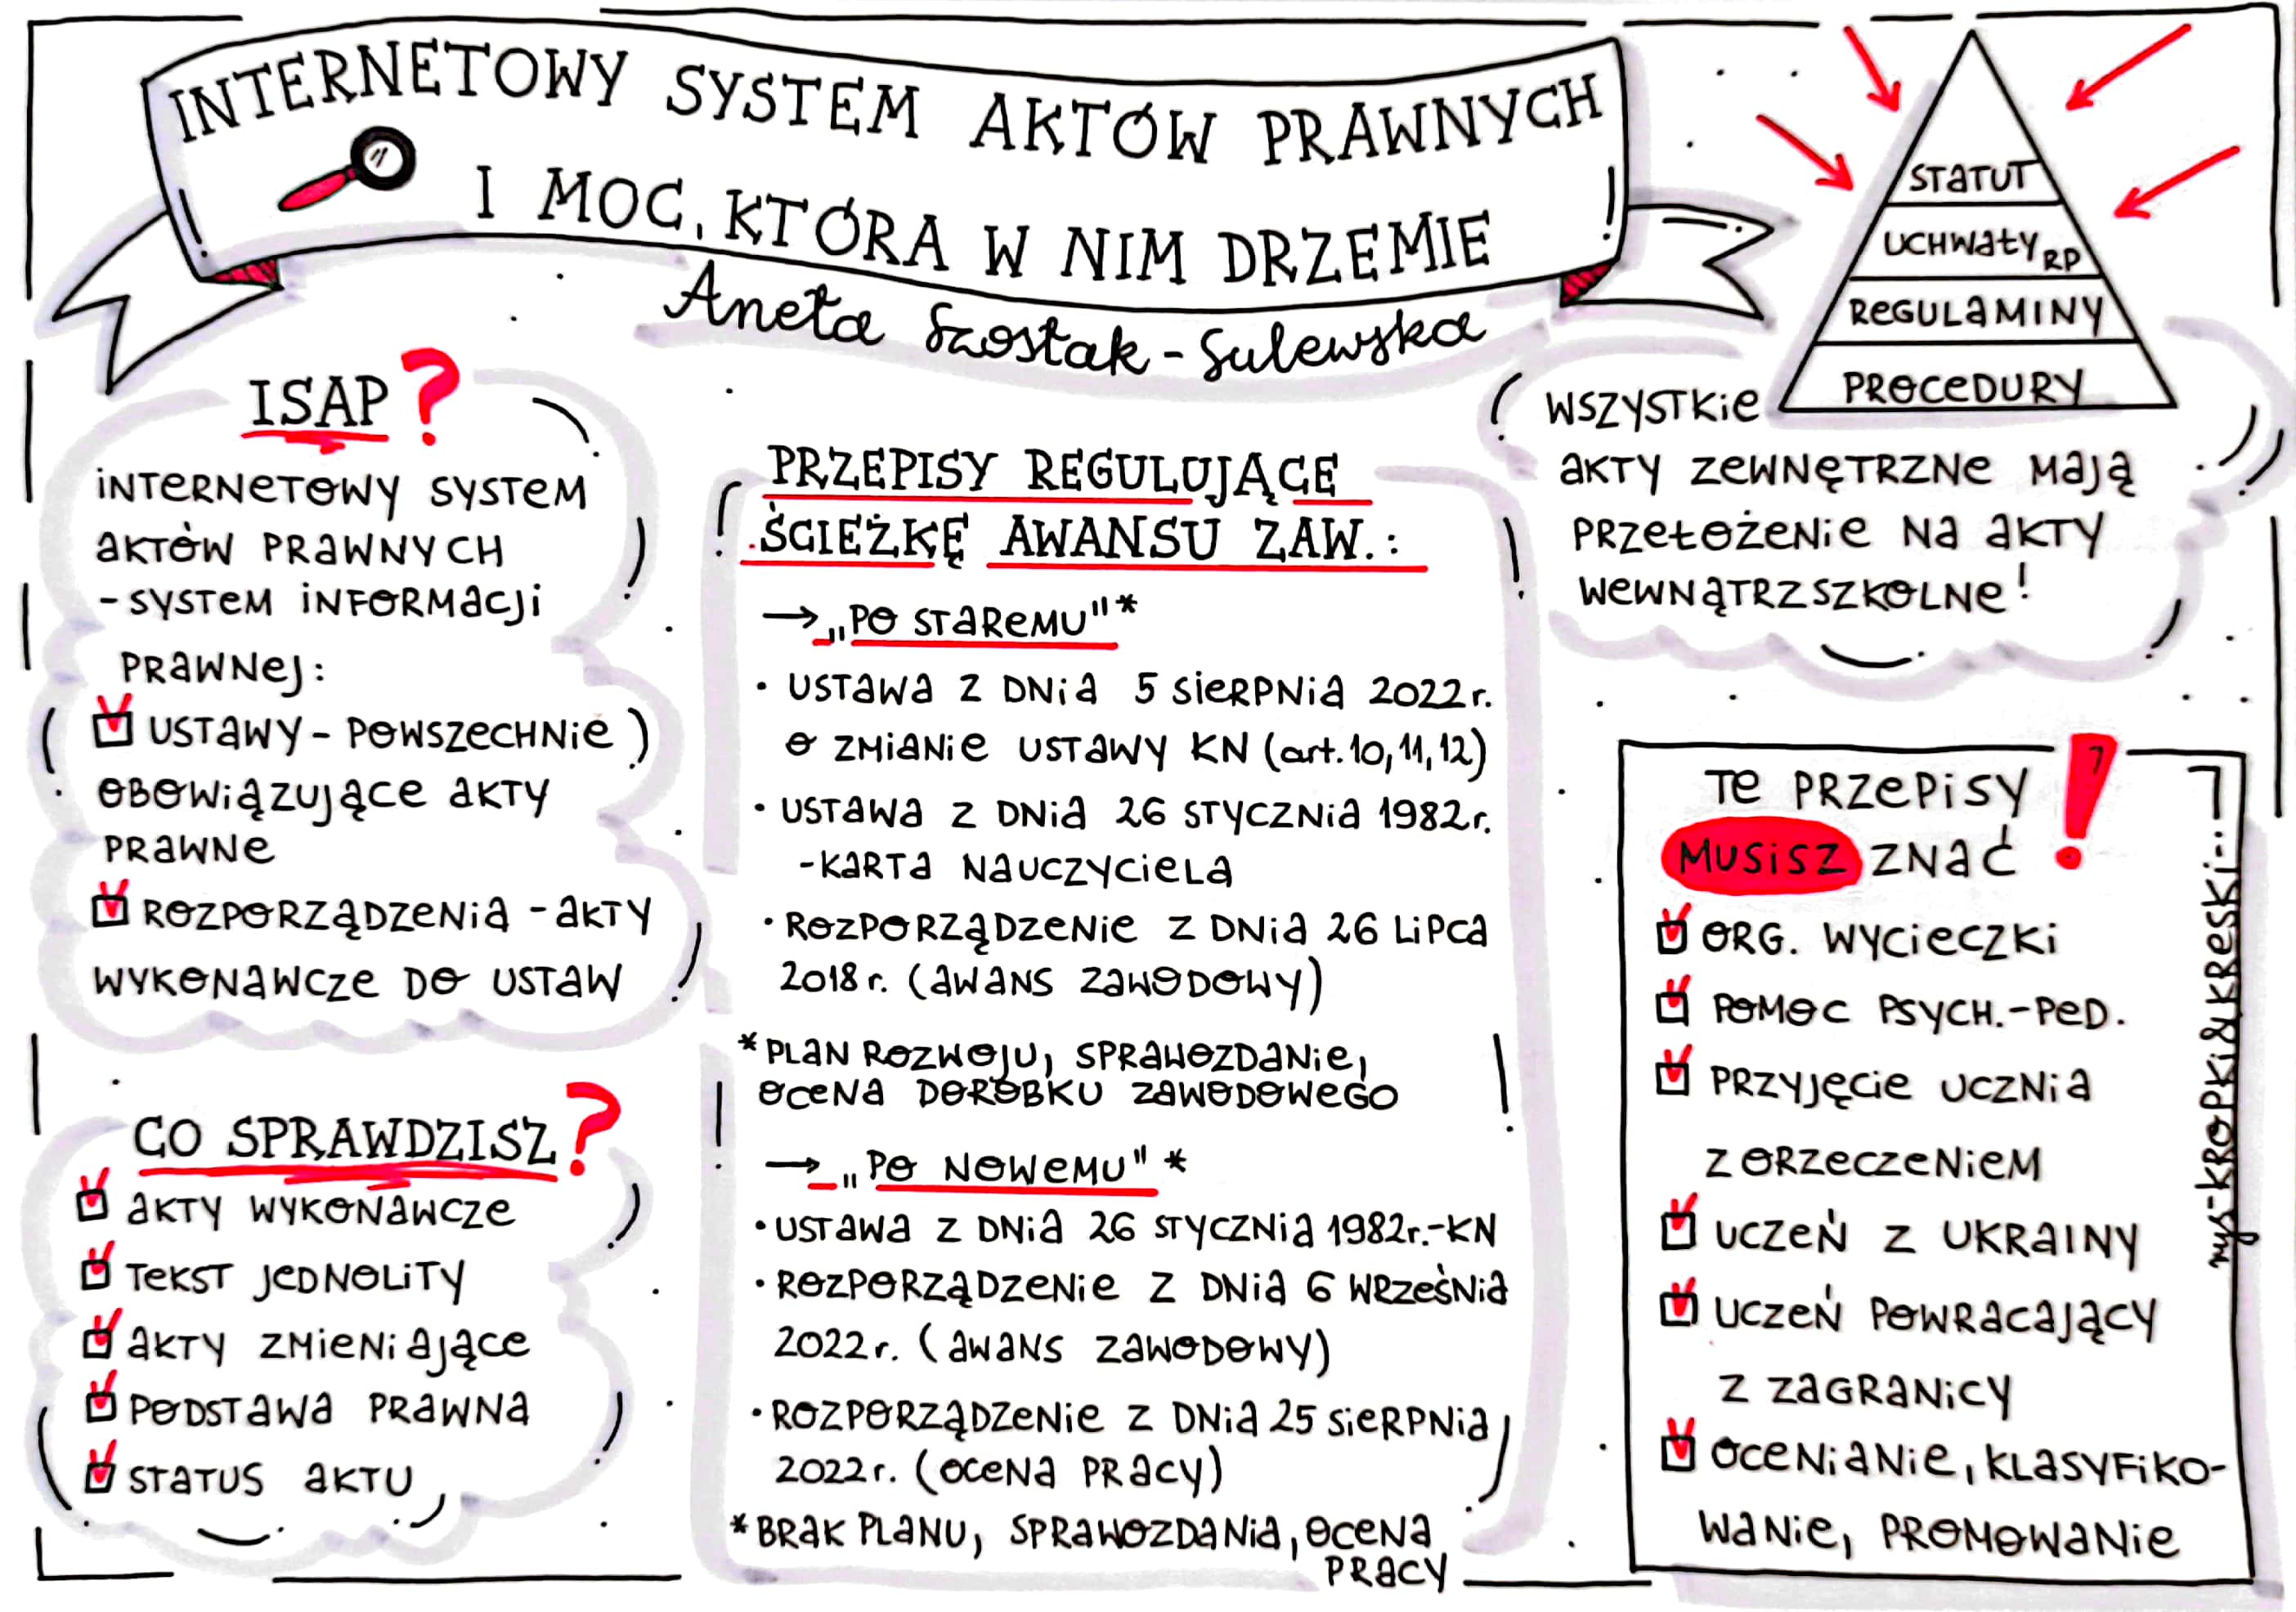 INTERNETOWY SYSTEM AKTÓW PRAWNYCH
I MOC, KTÓRA W NIM DRZEMIE
Aneta Szostak-Sulewska
ISAP?
INTERNETOWY SYSTEM
AKTÓW PRAWNYCH
- SYSTEM INFORMACJI
PRAWNEJ:
USTAWY - POWSZECHNIE
OBOWIĄZUJĄCE AKTY
PRAWNE
ROZPORZĄDZENIA - AKTY
WYKONAWCZE DO USTAW
CO SPRAWDZISZ?
AKTY WYKONAWCZE
TEKST JEDNOLITY
AKTY ZMIENIAJĄCE
PODSTAWA PRAWNA
STATUS AKTU
PRZEPISY REGULUJĄCE
ŚCIEŻKĘ AWANSU ZAW.:
→ „PO STAREMU"*
• USTAWA Z DNIA 5 SIERPNIA 2022r.
O ZMIANIE USTAWY KN (art. 10, 11, 12)
• USTAWA Z DNIA 26 STYCZNIA 1982r.
- KARTA NAUCZYCIELA
• ROZPORZĄDZENIE Z DNIA 26 LIPCA
2018 r. (AWANS ZAWODOWY)
* PLAN ROZWOJU, SPRAWOZDANIE,
OCENA DOROBKU ZAWODOWEGO
→ „PO NOWEMU" *
• USTAWA Z DNIA 26 STYCZNIA 1982r.-KN
• ROZPORZĄDZENIE Z DNIA 6 WRZEŚNIA
2022 r. (AWANS ZAWODOWY)
• ROZPORZĄDZENIE Z DNIA 25 SIERPNIA
2022 r. (OCENA PRACY)
* BRAK PLANU, SPRAWOZDANIA, OCENA
PRACY
STATUT
UCHWAŁY RP
REGULAMINY
PROCEDURY
WSZYSTKIE
AKTY ZEWNĘTRZNE MAJĄ
PRZEŁOŻENIE NA AKTY
WEWNĄTRZSZKOLNE!
TE PRZEPISY
MUSISZ ZNAĆ!
ORG. WYCIECZKI
POMOC PSYCH.-PED.
PRZYJĘCIE UCZNIA
Z ORZECZENIEM
UCZEŃ Z UKRAINY
UCZEŃ POWRACAJĄCY
Z ZAGRANICY
OCENIANIE, KLASYFIKO-
WANIE, PROMOWANIE
rys-KROPKI&KRESKI...